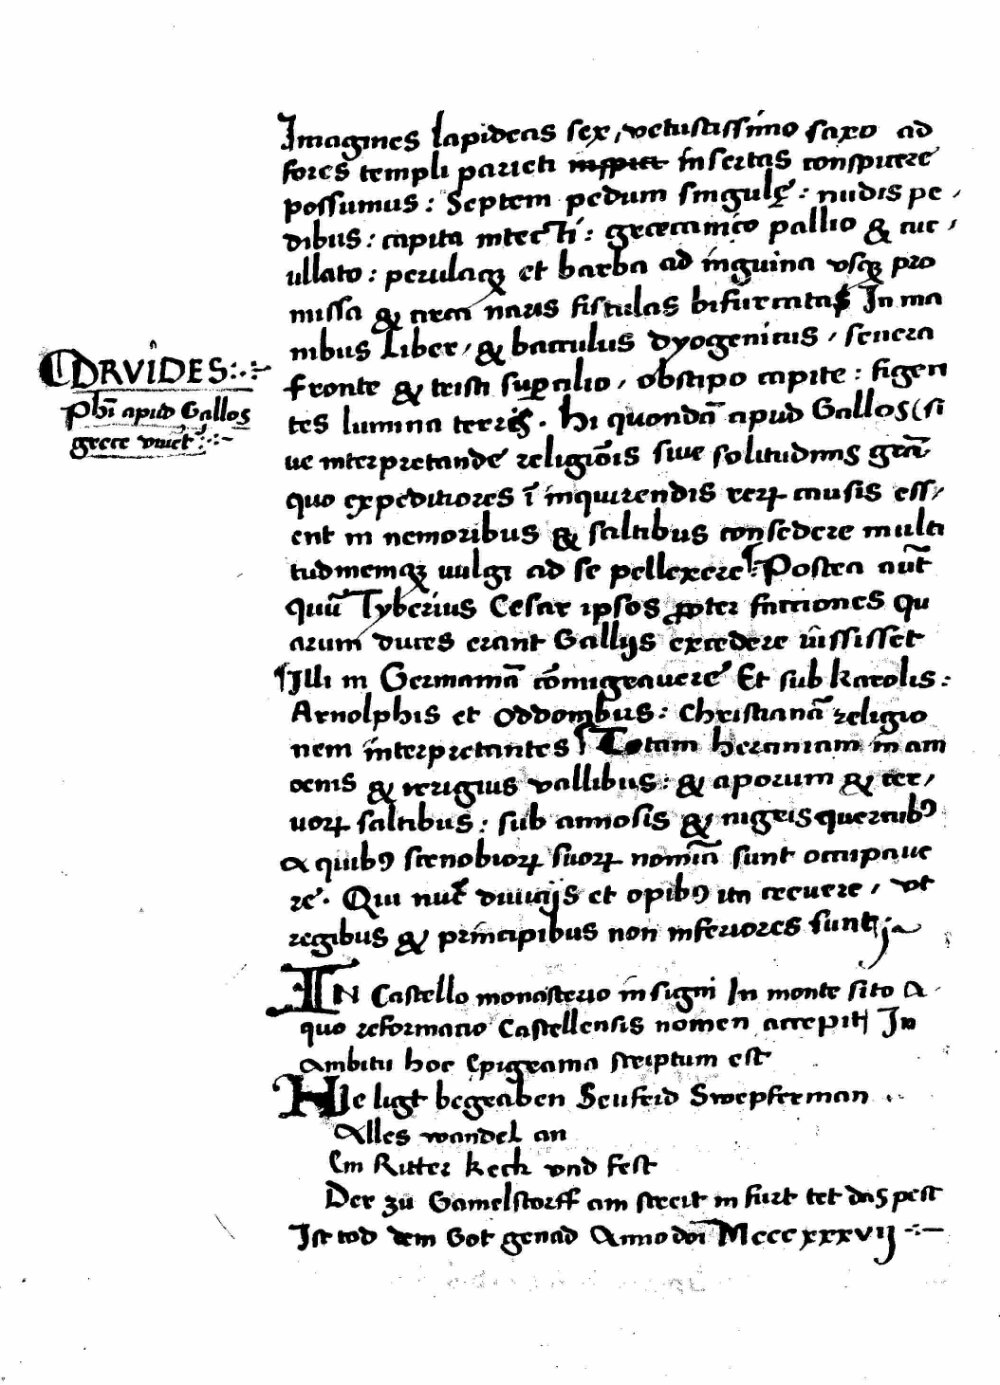 Imagines lapideas sex, vetustissimo saxo ad
fores templi parieti inspici insertas conspicere
possumus: Septem pedum singulę: nudis pe,
dibus: capita intecti: grecanico pallio & cuc,
ullato: perulaqꝫ et barba ad inguina vsqꝫ pro
missa & circa naris fistulas bifurcata In ma
nibus Liber, & bacculus dyogenicus, seuera
fronte & tristi suꝑcilio, obstipo capite: figen
tes lumina terris. Hi quondā apud Gallos (si
ue interpretande religiōis siue solitudinis grā
quo expeditiores ī inquirendis rerꝝ causis ess,
ent in nemoribus & saltibus consedere multi
tudinemqꝫ uulgi ad se pellexere Postea aut̄
quū Tyberius Cesar ipsos ꝓpter factiones qu
arum duces erant Gallijs excedere iussisset
Illi in Germaniā cōmigrauere Et sub Karolis:
Arnolphis et Oddonibus: Christianā religio
nem interpretantes Totam herciniam in am
oenis & irriguis vallibus: & aporum & cer,
uorꝝ saltibus: sub annosis & nigris quercubꝰ
a quibꝰ scenobiorꝝ suorꝝ nomīa sunt occupaue
re. Qui nūc diuicijs et opibꝰ ita creuere, vt
regibus & principibus non inferiores sunt
DRVIDES:
Phi apud Gallos
grece viuēt:
IN Castello monasterio insigni In monte sito a
quo reformatio Castellensis nomen accepit In
Ambitu hoc Epigrama scriptum est
HIe ligt begraben Seufrid Swepferman
Alles wandel an
Em Ritter keck vnd fest
Der zu Gamelstorff am streit in furt tet das pest
Ist tod dem Got genad Anno doī Mcccxxxvij